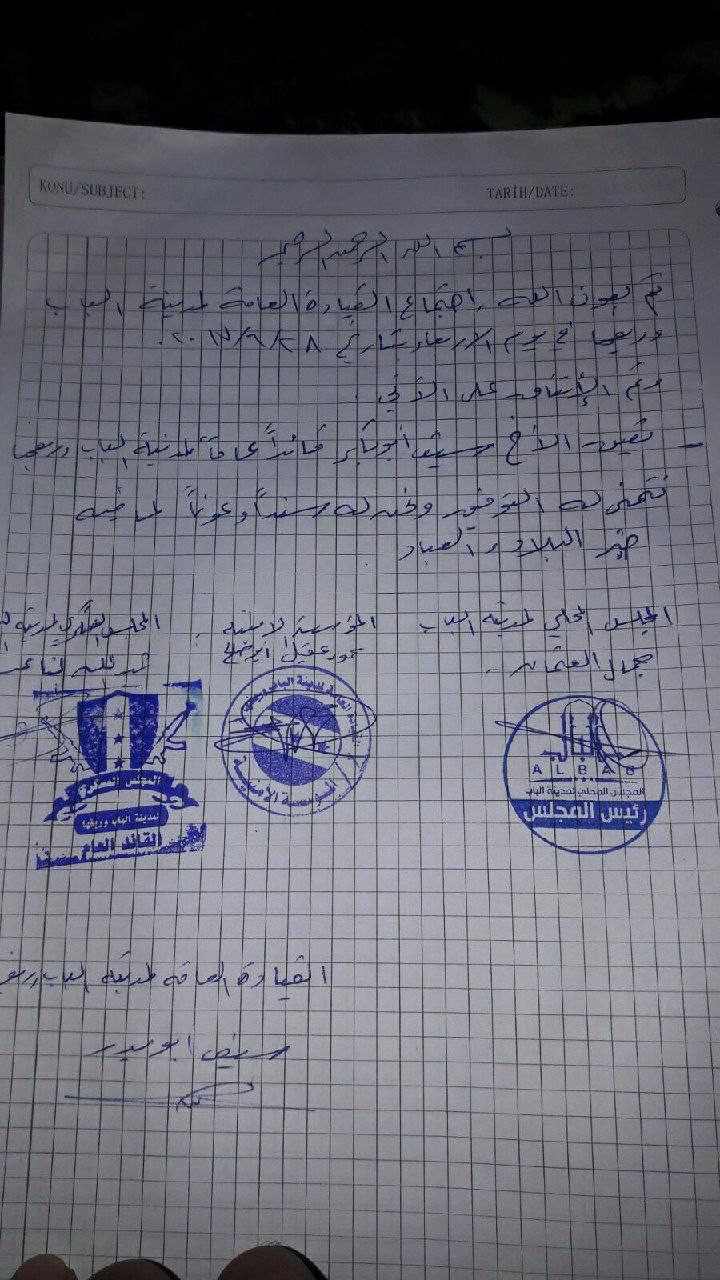 KONU/SUBJECT:
TARİH/DATE:
بسم الله الرحمن الرحيم
تم بعون الله اجتماع القيادة العامة لمدينة الباب
وريفها في يوم الاربعاء بتاريخ
وتم الإتفاق على الآتي.
- تعيين الأخ سيف أبو بكر قائداً عاماً لمدينة الباب وريفها
نتمنى له التوفيق ونحن له سنداً وعوناً لما فيه
خير البلاد والعباد
المجلس المحلي لمدينة الباب
جمال العثمان
المؤسسة الأمنية
المجلس العسكري لمدينة
الباب
A L B A B
المجلس المحلي لمدينة الباب
رئيس المجلس
المؤسسة الأمنية
المجلس العسكري
لمدينة الباب وريفها
القائد العام
القيادة العامة لمدينة الباب وريفها
سيف ابو بكر